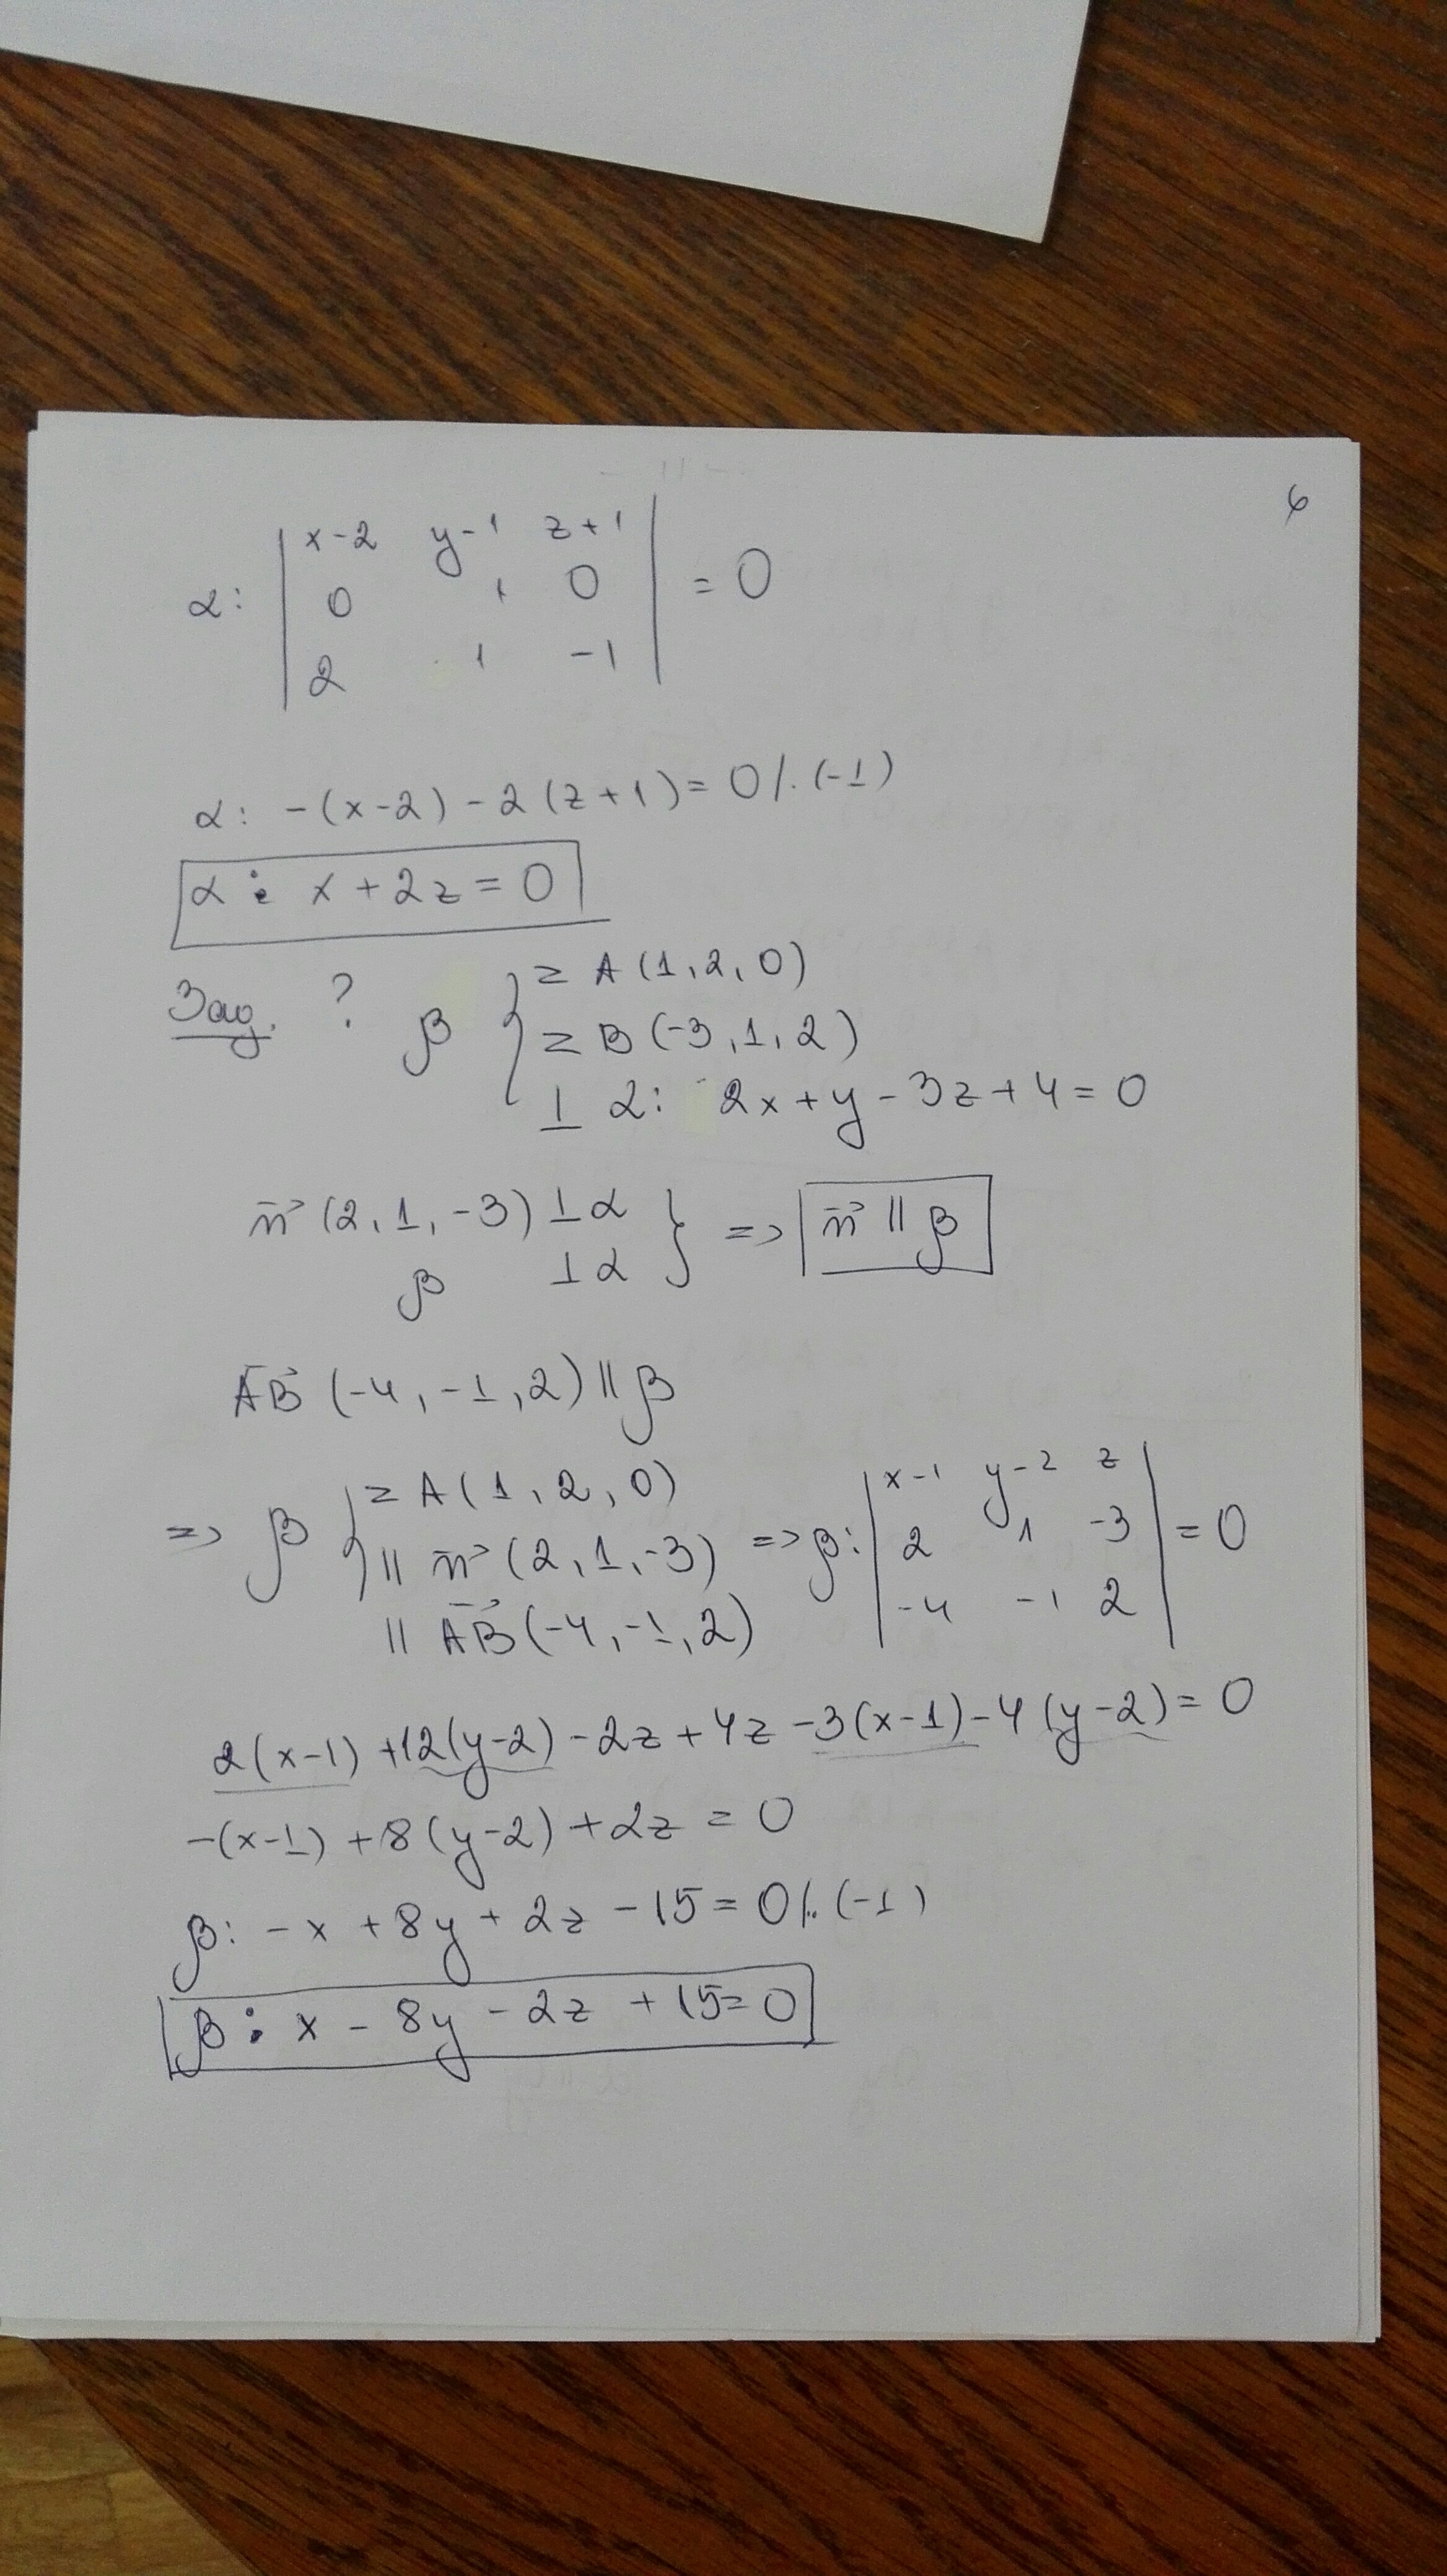 6
α: | x-2 y-1 z+1 |
| 0 1 0 | = 0
| 2 1 -1 |
α: -(x-2) - 2(z+1) = 0 /. (-1)
α: x + 2z = 0
Зад. ? β { z A(1,2,0)
z B(-3,1,2)
⊥ α: 2x+y-3z+4=0
n⃗ (2,1,-3) ⊥ α } => n⃗ || β
β ⊥ α
AB⃗ (-4,-1,2) || β
=> β { z A(1,2,0)
|| n⃗ (2,1,-3) => β: | x-1 y-2 z |
|| AB⃗ (-4,-1,2) | 2 1 -3 | = 0
| -4 -1 2 |
2(x-1) +12(y-2) -2z +4z -3(x-1) -4(y-2) = 0
-(x-1) +8(y-2) +2z = 0
β: -x +8y + 2z -15 = 0 /. (-1)
β: x - 8y - 2z + 15 = 0